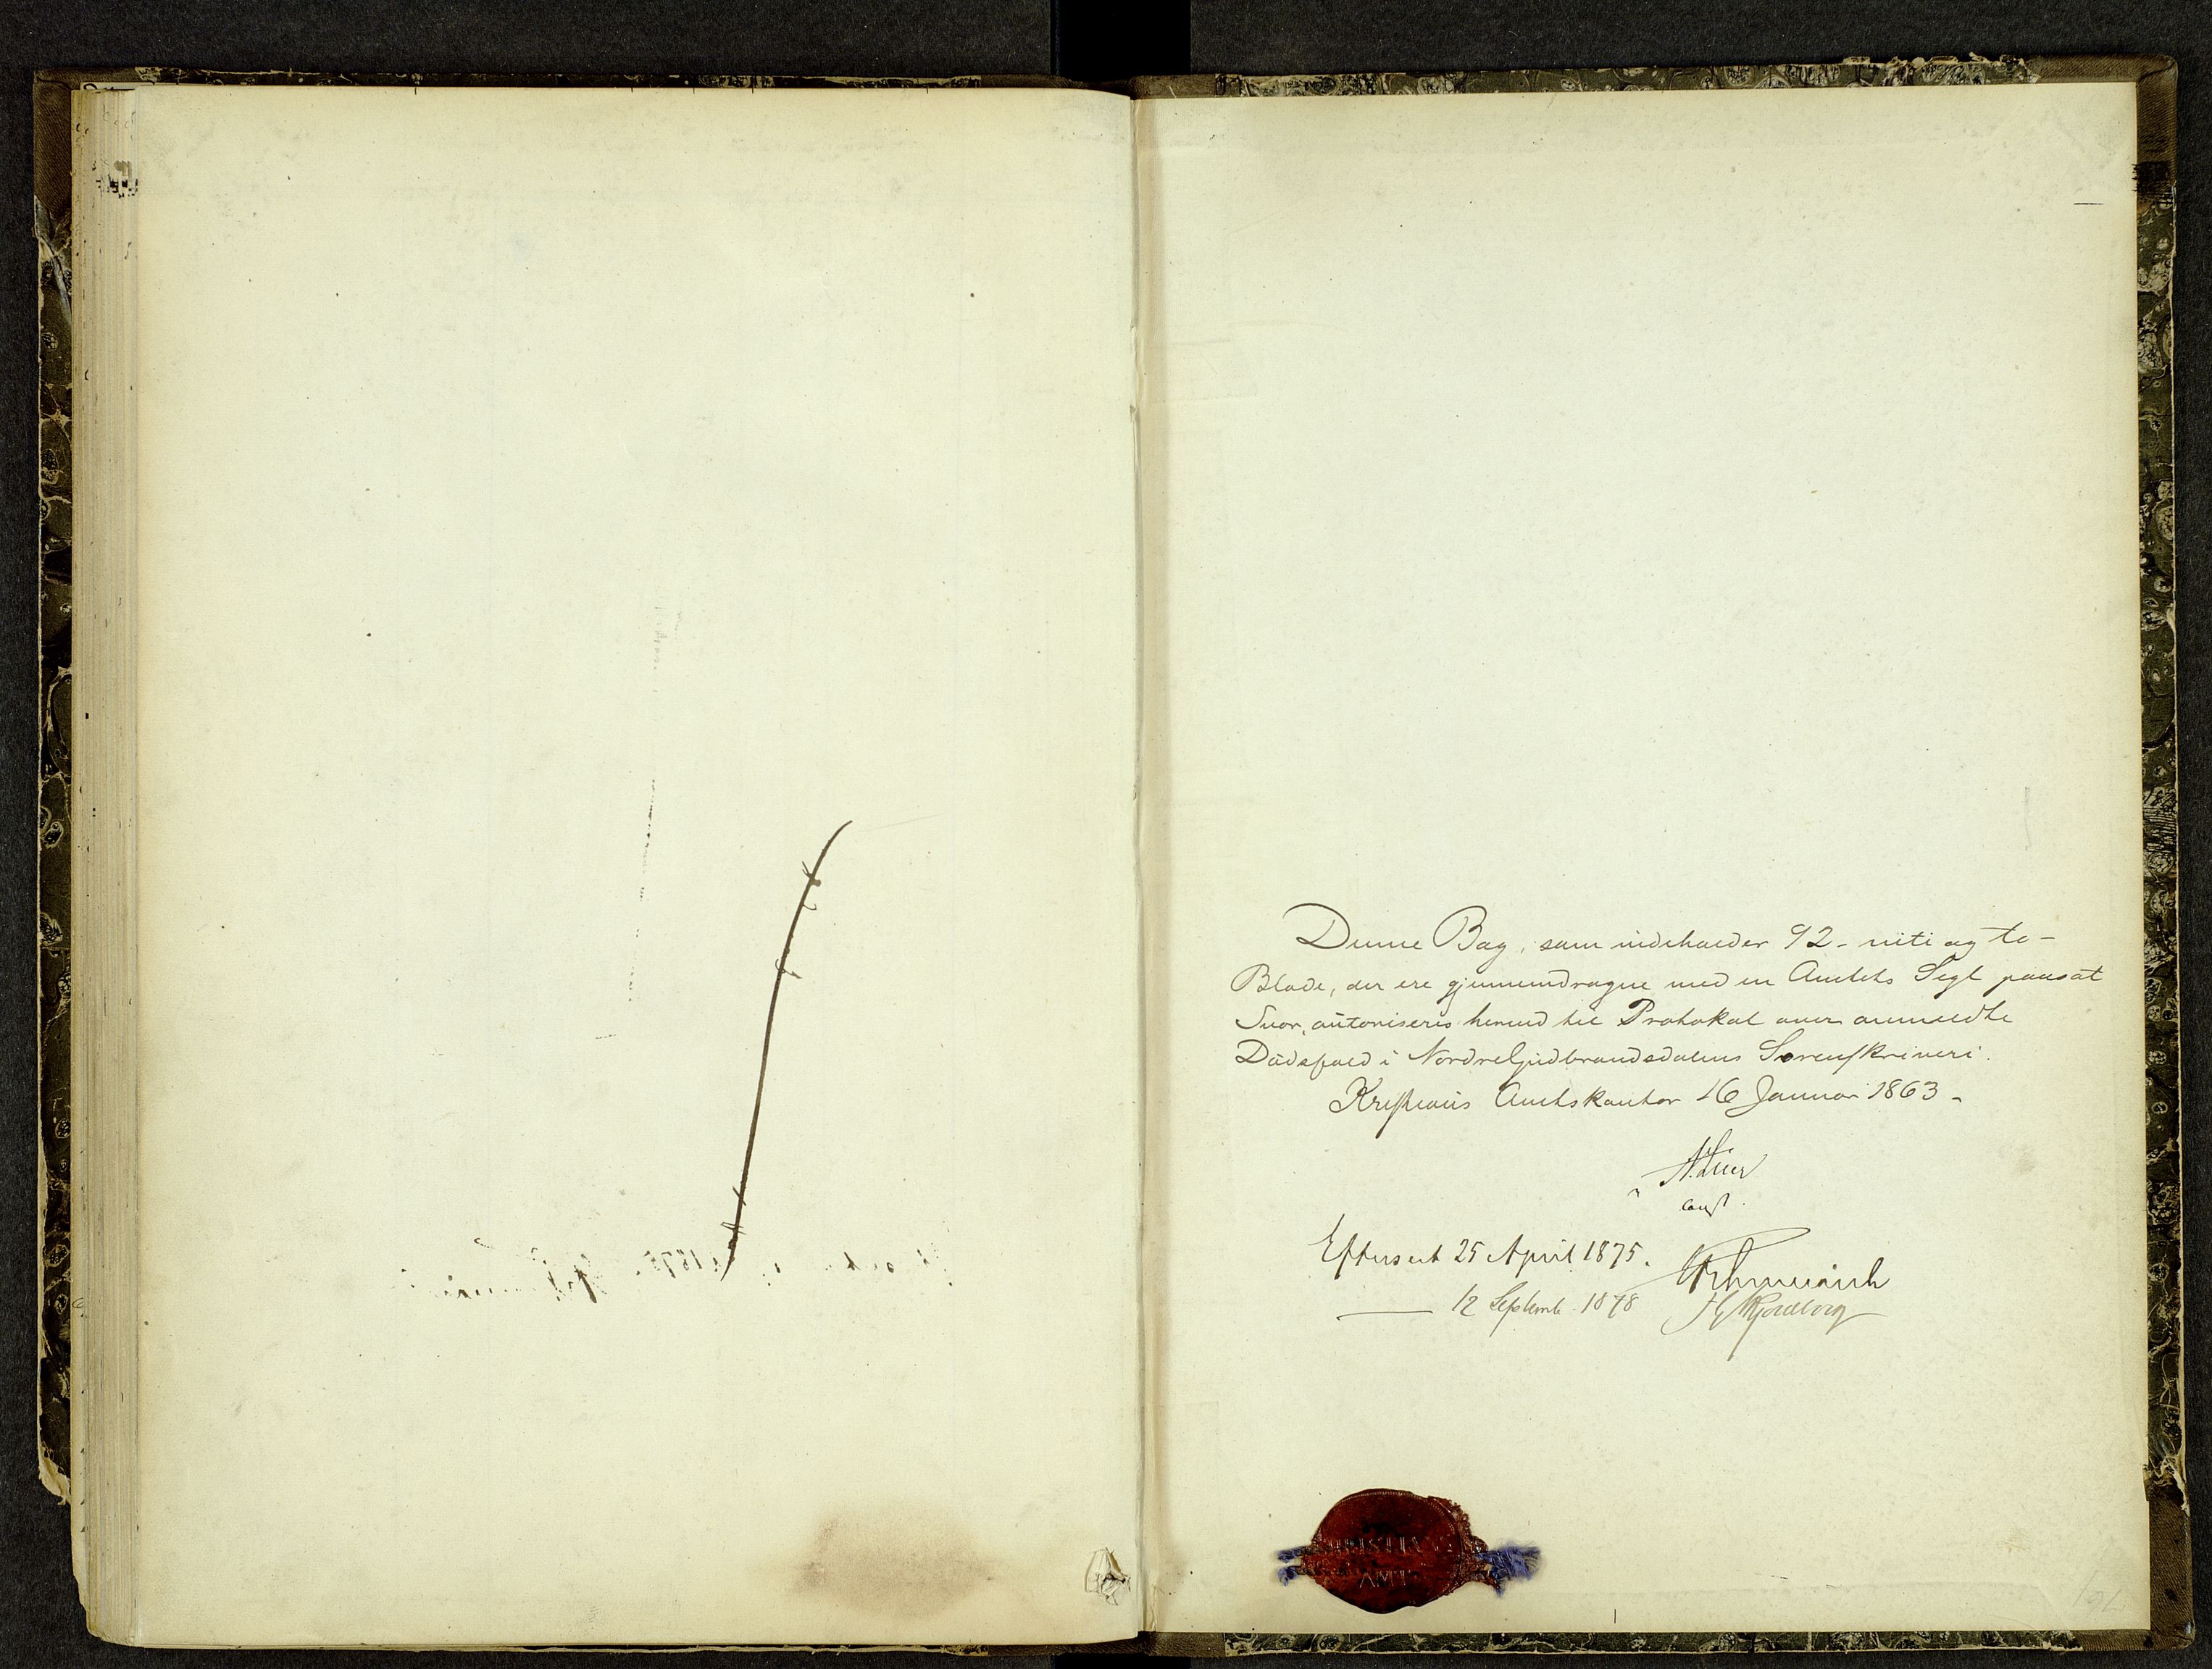 Denne Bog, som indeholder 92 - niti og to -
Blade, der ere gjennemdragne med en Amtets Segl paasat
Snor, autoriseres herved til Protokol over anmeldte
Dödsfald i Nordre Gudbrandsdalens Sorenskriveri.
Kristians Amtskontor 16 Januar 1863 -
const.
Efterseet 25 April 1875.
—— 12 Septemb. 1878
CHRISTIANS
AMT